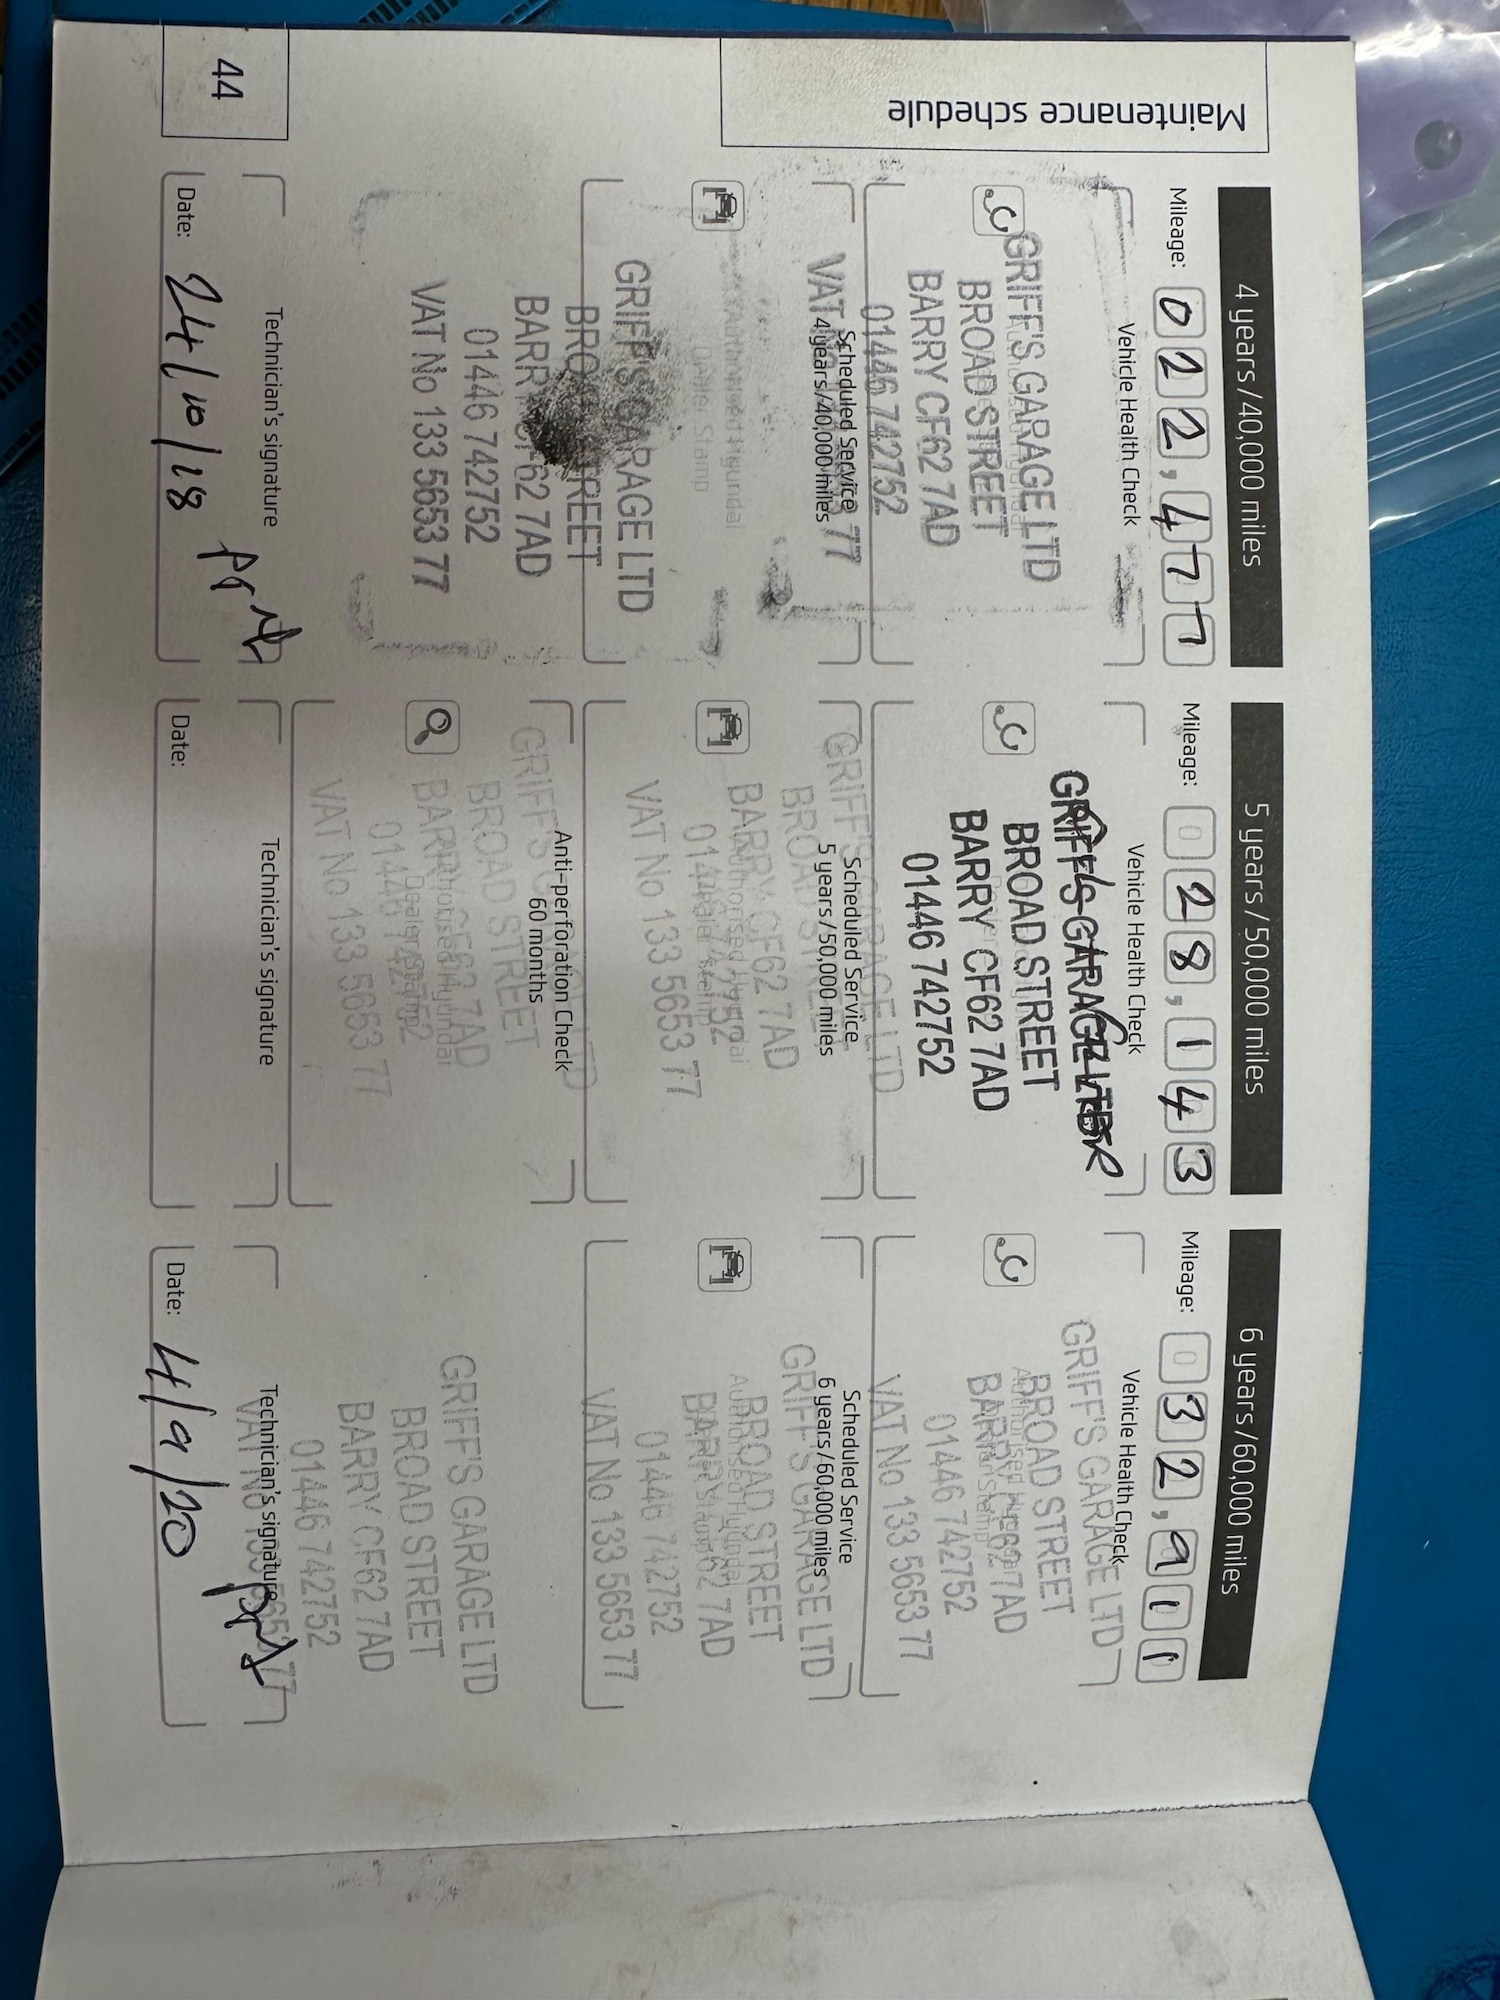 Maintenance schedule
4 years/40,000 miles
Mileage: 022,477
Vehicle Health Check
GRIFF'S GARAGE LTD
BROAD STREET
BARRY CF62 7AD
01446 742752
VAT
77
Scheduled Service
4 years/40,000 miles
Authorised Hyundai
Dealer Stamp
GRIFF'S GARAGE LTD
BROAD STREET
BARRY CF62 7AD
01446 742752
VAT No 133 5653 77
Technician's signature
Date: 24/10/18
5 years/50,000 miles
Mileage: 028,143
Vehicle Health Check
GRIFF'S GARAGE LTD
BROAD STREET
BARRY CF62 7AD
01446 742752
Scheduled Service
5 years/50,000 miles
GRIFF'S GARAGE LTD
BROAD STREET
BARRY CF62 7AD
01446 742752
VAT No 133 5653 77
Authorised Hyundai
Dealer Stamp
Anti-perforation Check
60 months
GRIFF'S GARAGE LTD
BROAD STREET
BARRY CF62 7AD
01446 742752
VAT No 133 5653 77
Authorised Hyundai
Dealer Stamp
Technician's signature
Date:
6 years/60,000 miles
Mileage: 032,911
Vehicle Health Check
GRIFF'S GARAGE LTD
BROAD STREET
BARRY CF62 7AD
01446 742752
VAT No 133 5653 77
Authorised Hyundai
Dealer Stamp
Scheduled Service
6 years/60,000 miles
GRIFF'S GARAGE LTD
BROAD STREET
BARRY CF62 7AD
01446 742752
VAT No 133 5653 77
Authorised Hyundai
Dealer Stamp
GRIFF'S GARAGE LTD
BROAD STREET
BARRY CF62 7AD
01446 742752
VAT No 133 5653 77
Technician's signature
Date: 4/9/20
44